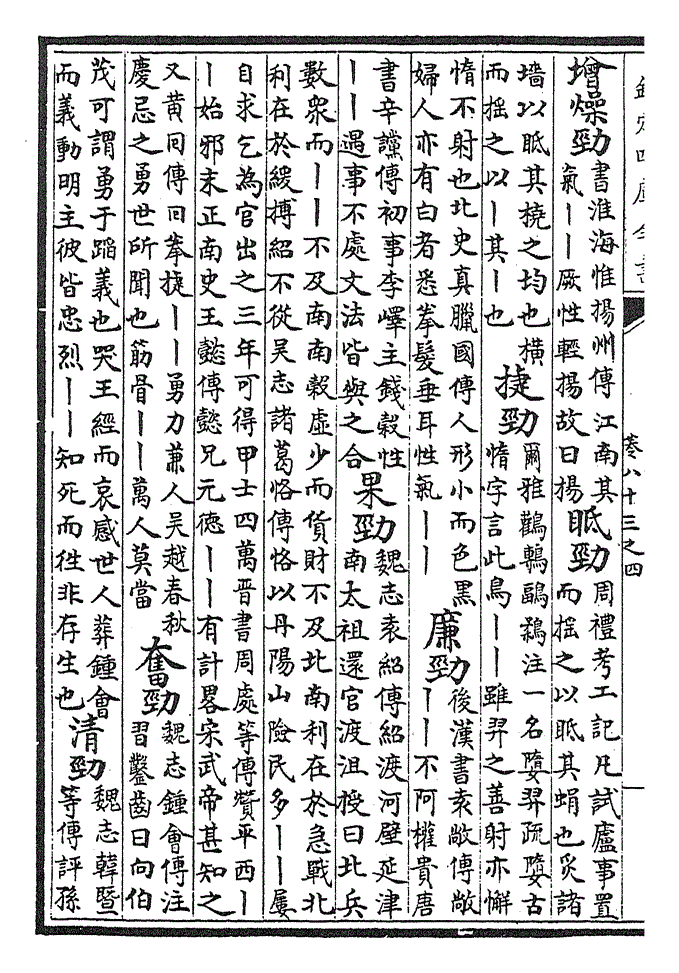 欽定四庫全書
卷八十三之四
一
增燥勁
書淮海惟揚州傳江南其
氣丨丨厥性輕揚故曰揚
眡勁
周禮考工記凡試廬事置
而揺之以眡其蜎也炙諸
墻以眡其橈之均也横
而揺之以丨其丨也
捷勁
爾雅鸛鷒鶝鶔注一名墮羿疏墮古
惰字言此鳥丨丨雖羿之善射亦懈
惰不射也北史真臘國傳人形小而色黑
婦人亦有白者悉拳髮垂耳性氣丨丨
廉勁
後漢書袁敞傳敞
丨丨不阿權貴唐
書辛讜傳初事李嶧主錢穀性
丨丨遇事不處文法皆與之合
果勁
魏志袁紹傳紹渡河壁延津
南太祖還官渡沮授曰北兵
數衆而丨丨不及南南穀虚少而貨財不及北南利在於急戰北
利在於緩搏紹不從吳志諸葛恪傳恪以丹陽山險民多丨丨屢
自求乞為官出之三年可得甲士四萬晉書周處等傳贊平西丨
丨始邪末正南史王懿傳懿兄元德丨丨有計畧宋武帝甚知之
又黄回傳回拳捷丨丨勇力兼人吳越春秋
慶忌之勇世所聞也筋骨丨丨萬人莫當
奮勁
魏志鍾會傳注
習鑿齒曰向伯
茂可謂勇于蹈義也哭王經而哀感世人葬鍾會
而義動明主彼皆忠烈丨丨知死而往非存生也
清勁
魏志韓暨
等傳評孫